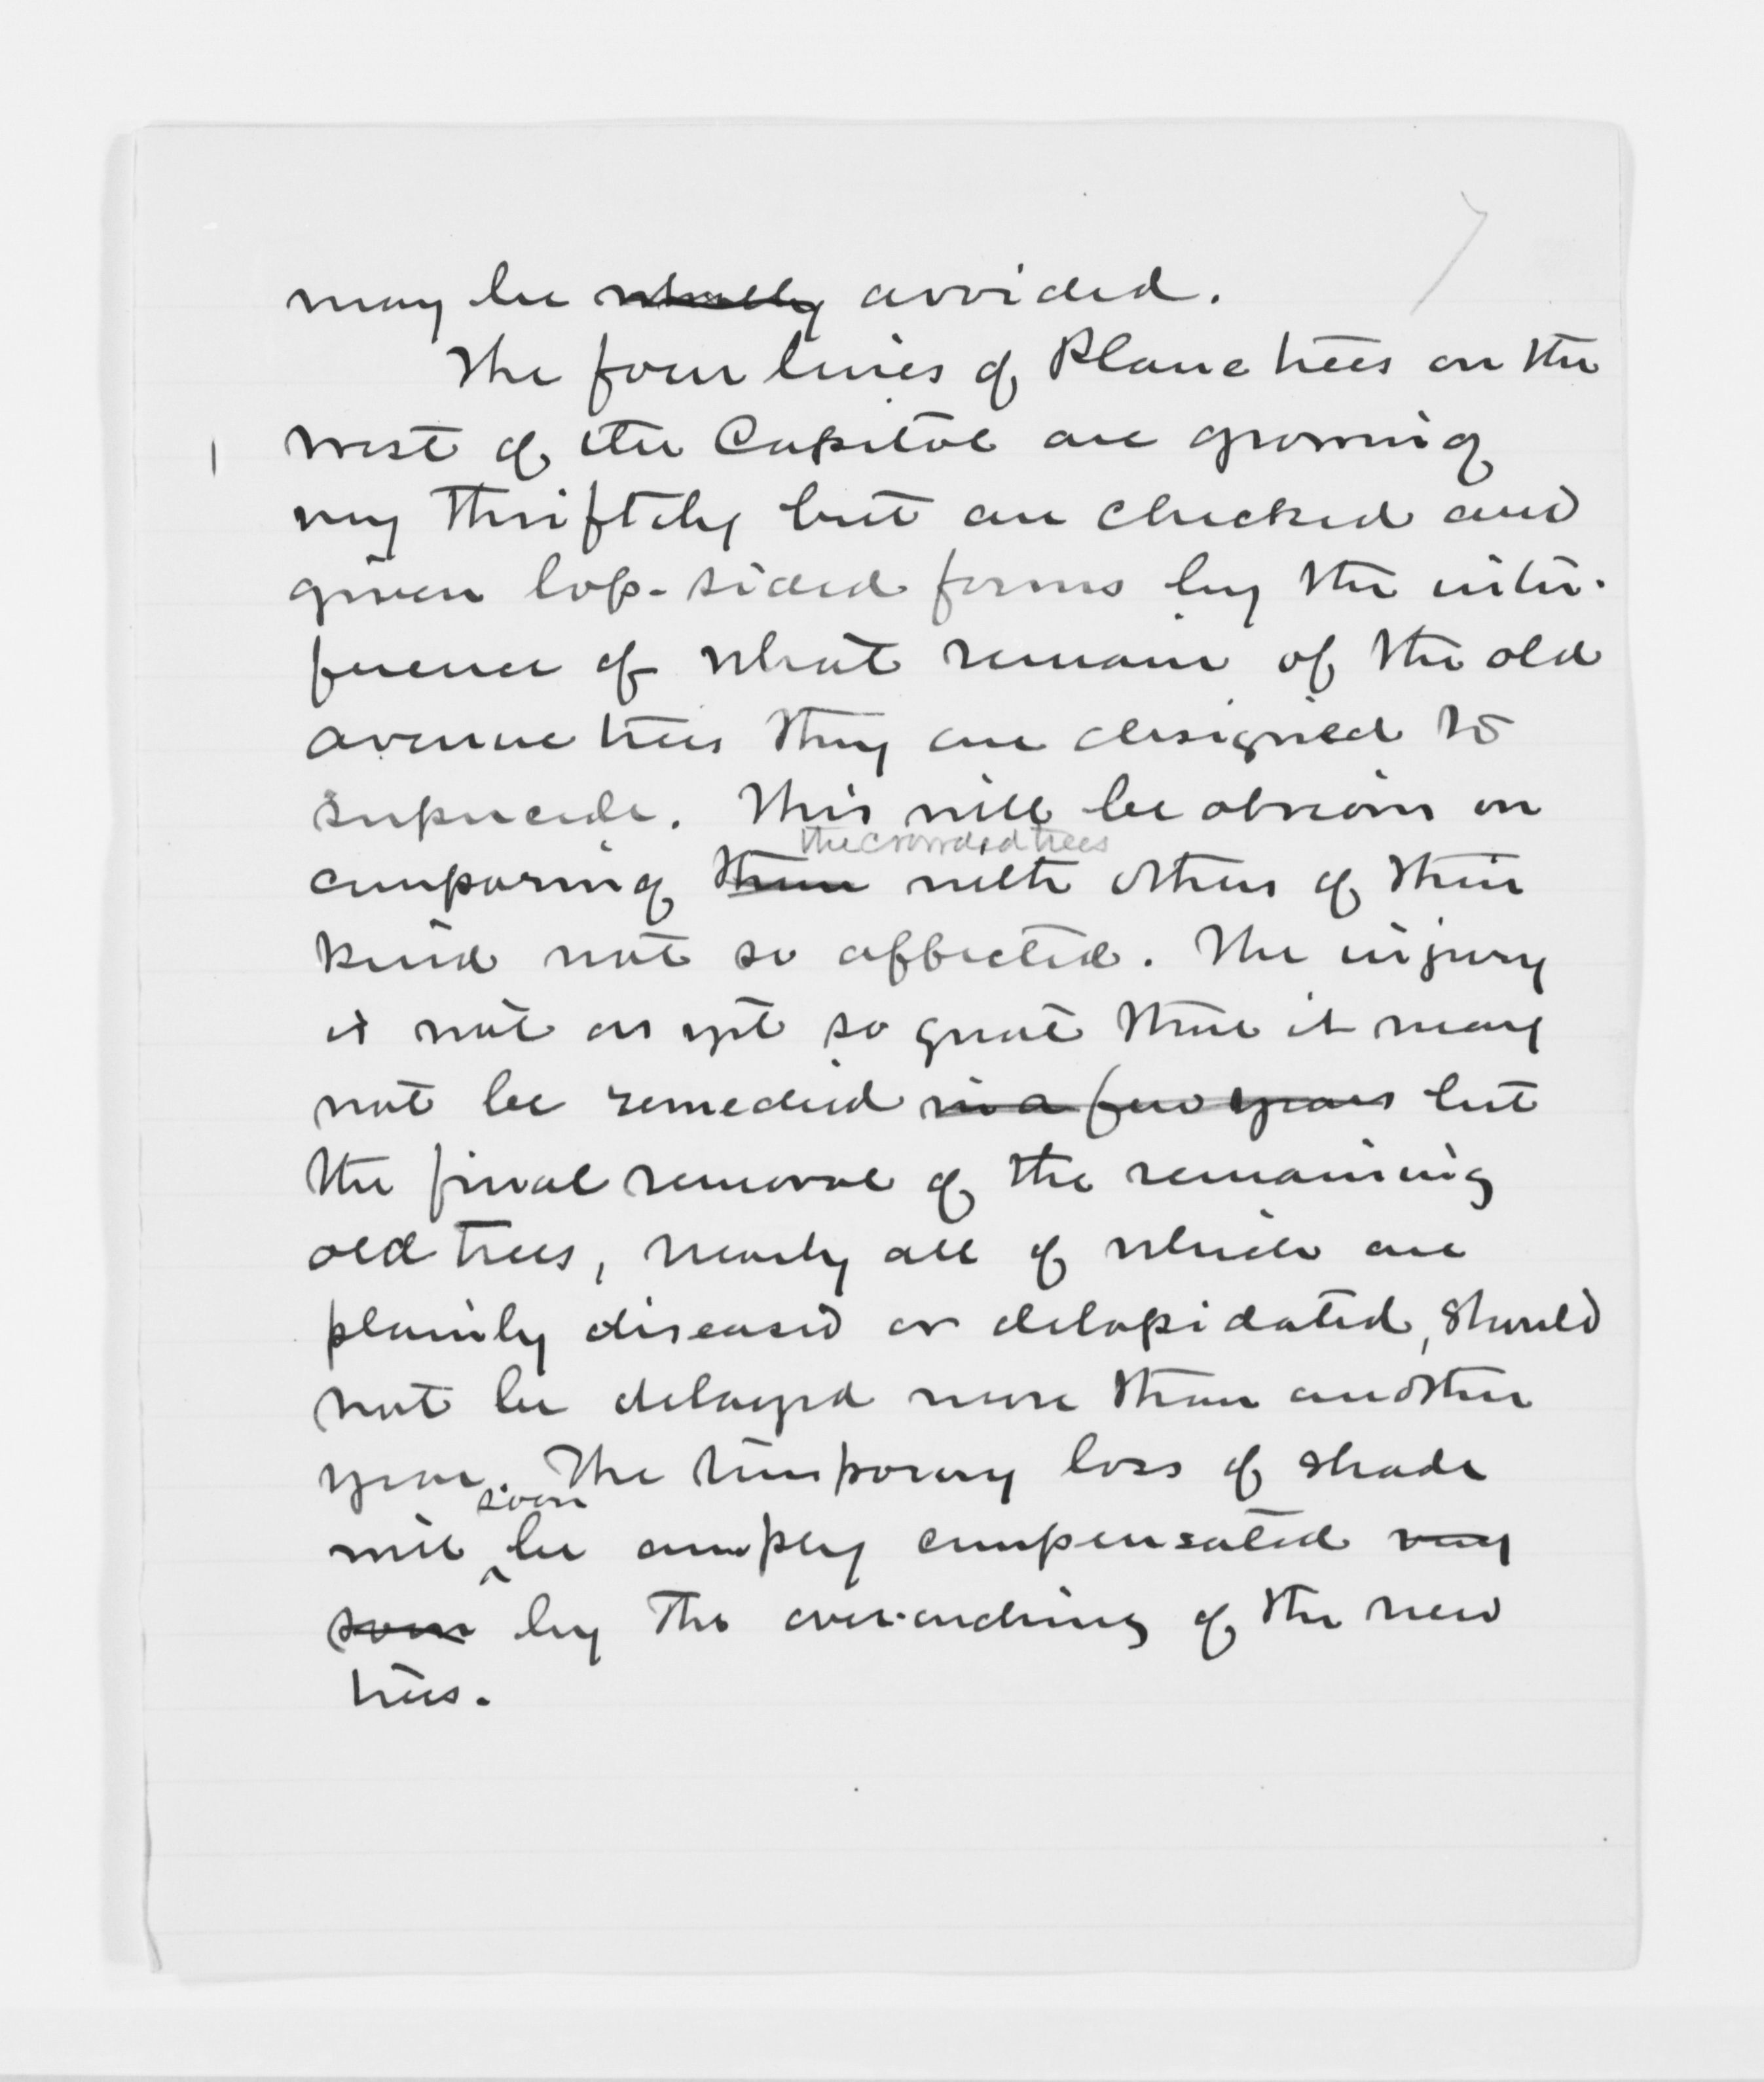 7
may be wholly avoided.
The four lines of Plane trees on the
west of the Capitol are growing
very thriftily but are checked and
given lop-sided forms by the inter-
ference of what remain of the old
avenue trees they are designed to
supercede. This will be obvious on
the crowded trees
comparing them with others of their
kind not so affected. The injury
is not as yet so great that it may
not be remedied in a few years but
the final removal of the remaining
old trees, nearly all of which are
plainly diseased or delapidated, should
not be delayed more than another
year. The temporary loss of shade
soon
will be amply compensated very
soon by the over-arching of the new
trees.